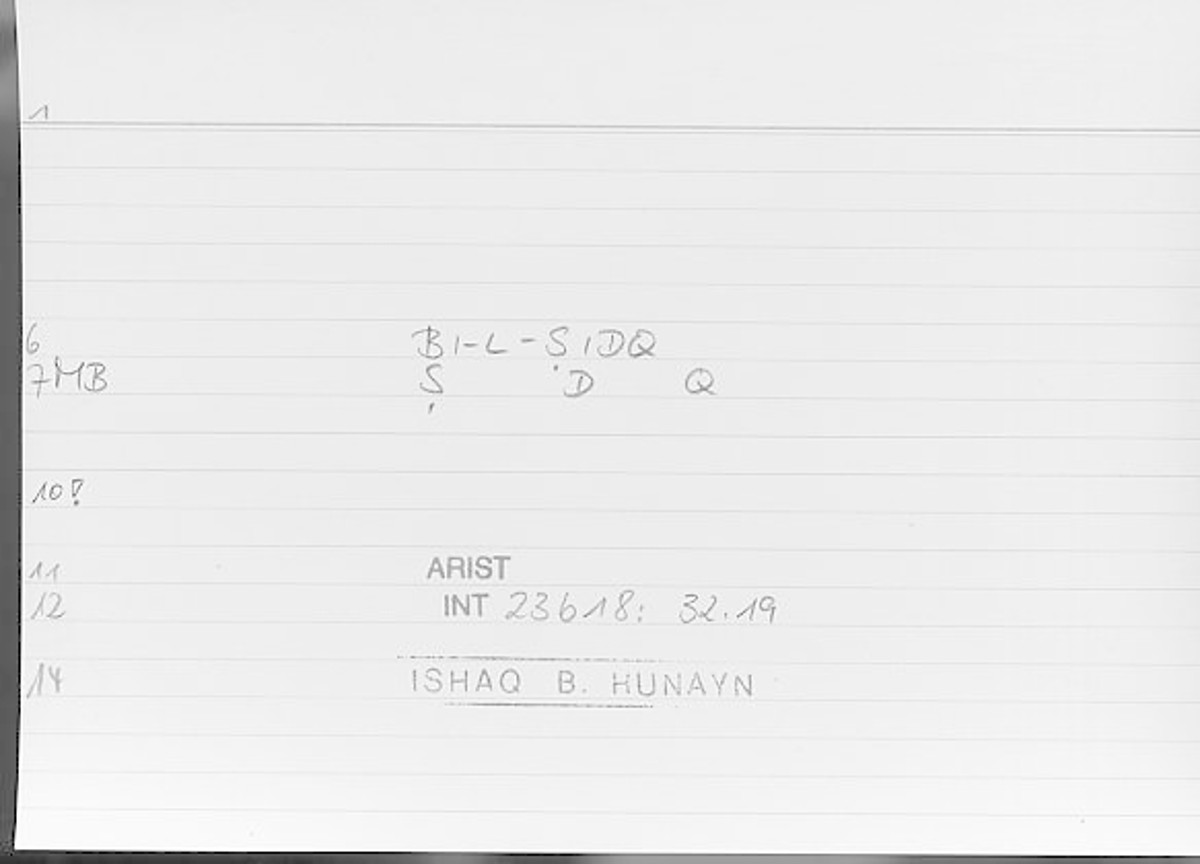 1
6 BI-L-ṢIDQ
7MB Ṣ D Q
10!
11 ARIST
12 INT 23618: 32.19
14 ISHAQ B. HUNAYN